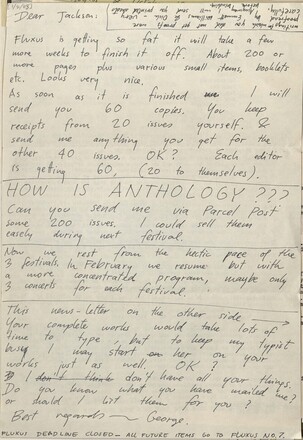 Dear Jackson:
Fluxus is getting so fat it will take a few
more weeks to finish it off. About 200 or
more pages plus various small items, booklets
etc. Looks very nice.
As soon as it is finished I will
send you 60 copies. You keep
receipts from 20 issues yourself. &
send me anything you get for the
other 40 issues. OK? Each editor
is getting 60, (20 to themselves).
HOW IS ANTHOLOGY ???
Can you send me via Parcel Post
some 200 issues. I could sell them
easily during next festival.
Now we rest from the hectic pace of the
3 festivals. In February we resume but with
a more concentrated program, maybe only
3 concerts for each festival.
This news-letter on the other side →
Your complete works would take lots of
time to type, but to keep my typist
busy I may start her on your
works just as well. OK?
I don't think don't have all your things.
Do you know what you have mailed me?
or should I list them for you?
Best regards — George.
FLUXUS DEADLINE CLOSED — ALL FUTURE ITEMS GO TO FLUXUS NO. 2.